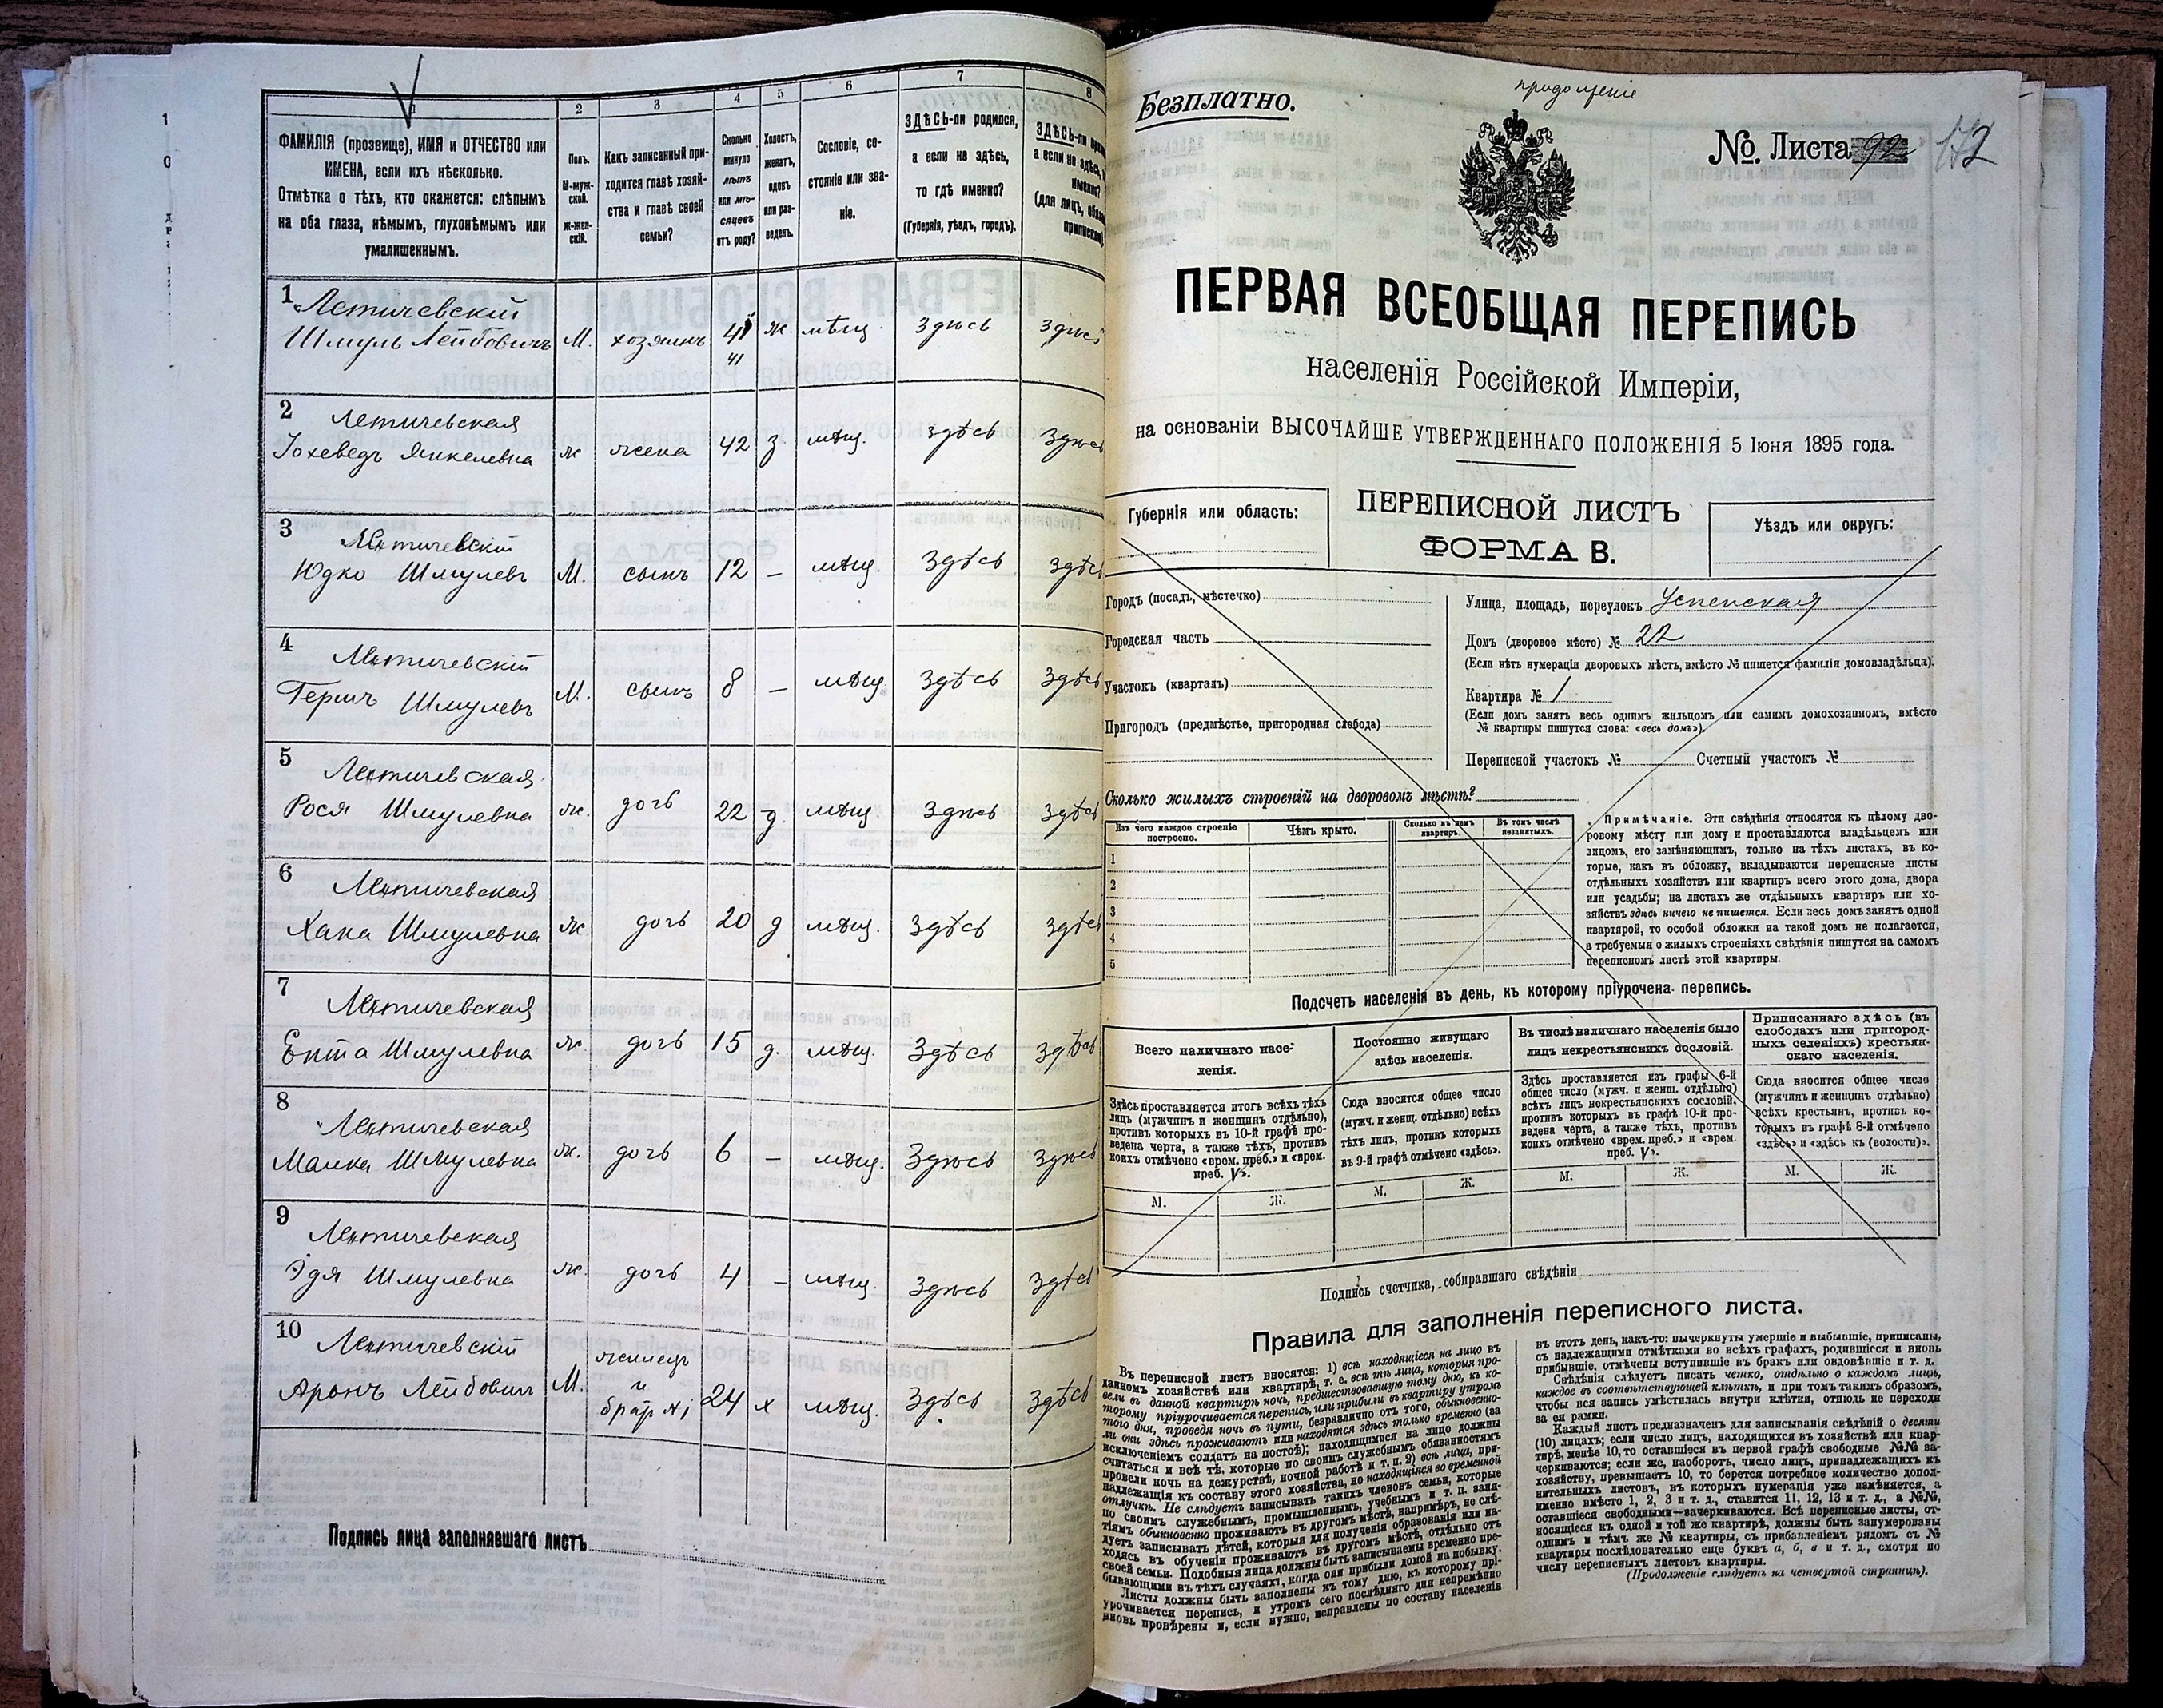 1
2
3
4
5
6
7
8
ФАМИЛІЯ (прозвище), ИМЯ и ОТЧЕСТВО или
ИМЕНА, если ихъ нѣсколько.
Отмѣтка о тѣхъ, кто окажется: слѣпымъ
на оба глаза, нѣмымъ, глухонѣмымъ или
умалишеннымъ.
Полъ.
М-муж-
ской.
Ж-жен-
скій.
Какъ записанный при-
ходится главѣ хозяй-
ства и главѣ своей
семьи?
Сколько
минуло
лѣтъ
или мѣ-
сяцевъ
отъ роду?
Холостъ,
женатъ,
вдовъ
или раз-
веденъ.
Сословіе, со-
стояніе или зва-
ніе.
ЗДѢСЬ-ли родился,
а если не здѣсь,
то гдѣ именно?
(Губернія, уѣздъ, городъ).
ЗДѢСЬ-ли
а если не здѣсь,
(для лицъ,
1
Летичевскій
Шмуль Лейбовичъ М. хозяинъ 41 ж мѣщ. здѣсь здѣсь
41
2
Летичевская
Іохеведъ Янкелевна ж жена 42 з мѣщ. здѣсь здѣсь
3
Летичевскій
Юдко Шмулевъ М. сынъ 12 – мѣщ. здѣсь здѣсь
4
Летичевскій
Гершъ Шмулевъ М. сынъ 8 – мѣщ. здѣсь здѣсь
5
Летичевская
Рося Шмулевна ж. дочь 22 д. мѣщ. здѣсь здѣсь
6
Летичевская
Хана Шмулевна ж. дочь 20 д мѣщ. здѣсь здѣсь
7
Летичевская
Ента Шмулевна ж. дочь 15 д. мѣщ. здѣсь здѣсь
8
Летичевская
Малка Шмулевна ж. дочь 6 – мѣщ. здѣсь здѣсь
9
Летичевская
Эдя Шмулевна ж. дочь 4 – мѣщ. здѣсь здѣсь
10
Летичевскій
Аронъ Лейбовичъ М. жилецъ и братъ №1 24 х мѣщ. здѣсь здѣсь
Подпись лица заполнявшаго листъ
продолженіе
Безплатно.
№. Листа 92 172
ПЕРВАЯ ВСЕОБЩАЯ ПЕРЕПИСЬ
населенія Россійской Имперіи,
на основаніи ВЫСОЧАЙШЕ УТВЕРЖДЕННАГО ПОЛОЖЕНІЯ 5 Іюня 1895 года.
Губернія или область:
ПЕРЕПИСНОЙ ЛИСТЪ
ФОРМА В.
Уѣздъ или округъ:
Городъ (посадъ, мѣстечко)
Городская часть
Участокъ (кварталъ)
Пригородъ (предмѣстье, пригородная слобода)
Улица, площадь, переулокъ Успенская
Домъ (дворовое мѣсто) № 22
(Если нѣтъ нумераціи дворовыхъ мѣстъ, вмѣсто № пишется фамилія домовладѣльца).
Квартира № 1
(Если домъ занятъ весь однимъ жильцомъ или самимъ домохозяиномъ, вмѣсто
№ квартиры пишутся слова: «весь домъ»).
Переписной участокъ № Счетный участокъ №
Сколько жилыхъ строеній на дворовомъ мѣстѣ?
Изъ чего каждое строеніе
построено.
Чѣмъ крыто.
Сколько въ немъ
квартиръ.
Въ томъ числѣ
незанятыхъ.
1
2
3
4
5
Примѣчаніе. Эти свѣдѣнія относятся къ цѣлому дво-
ровому мѣсту или дому и проставляются владѣльцемъ или
лицомъ, его замѣняющимъ, только на тѣхъ листахъ, въ ко-
торые, какъ въ обложку, вкладываются переписные листы
отдѣльныхъ хозяйствъ или квартиръ всего этого дома, двора
или усадьбы; на листахъ же отдѣльныхъ квартиръ или хо-
зяйствъ здѣсь ничего не пишется. Если весь домъ занятъ одной
квартирой, то особой обложки на такой домъ не полагается,
а требуемыя о жилыхъ строеніяхъ свѣдѣнія пишутся на самомъ
переписномъ листѣ этой квартиры.
Подсчетъ населенія въ день, къ которому пріурочена перепись.
Всего наличнаго насе-
ленія.
Постоянно живущаго
здѣсь населенія.
Въ числѣ наличнаго населенія было
лицъ некрестьянскихъ сословій.
Приписаннаго здѣсь (въ
слободахъ или пригород-
ныхъ селеніяхъ) крестьян-
скаго населенія.
Здѣсь проставляется итогъ всѣхъ тѣхъ
лицъ (мужчинъ и женщинъ отдѣльно),
противъ которыхъ въ 10-й графѣ про-
ведена черта, а также тѣхъ, противъ
коихъ отмѣчено «врем. преб.» и «врем.
преб. V».
Сюда вносится общее число
(мужч. и женщ. отдѣльно) всѣхъ
тѣхъ лицъ, противъ которыхъ
въ 9-й графѣ отмѣчено «здѣсь».
Здѣсь проставляется изъ графы 6-й
общее число (мужч. и женщ. отдѣльно)
всѣхъ лицъ некрестьянскихъ сословій,
противъ которыхъ въ графѣ 10-й про-
ведена черта, а также тѣхъ, противъ
коихъ отмѣчено «врем. преб.» и «врем.
преб. V».
Сюда вносится общее число
(мужчинъ и женщинъ отдѣльно)
всѣхъ крестьянъ, противъ ко-
торыхъ въ графѣ 8-й отмѣчено
«здѣсь» и «здѣсь къ (волости)».
М. Ж. М. Ж. М. Ж. М. Ж.
Подпись счетчика, собиравшаго свѣдѣнія
Правила для заполненія переписного листа.
Въ переписной листъ вносятся: 1) всѣ находящіеся на лицо въ
данномъ хозяйствѣ или квартирѣ, т. е. всѣ тѣ лица, которыя про-
вели въ данной квартирѣ ночь, предшествовавшую тому дню, къ ко-
торому пріурочивается перепись, или прибыли въ квартиру утромъ
того дня, проведя ночь въ пути, безразлично отъ того, обыкновенно-
ли они здѣсь проживаютъ или находятся здѣсь только временно (за
исключеніемъ солдатъ на постоѣ); находящимися на лицо должны
считаться и всѣ тѣ, которые по своимъ служебнымъ обязанностямъ
провели ночь на дежурствѣ, ночной работѣ и т. п. 2) всѣ лица, при-
надлежащія къ составу этого хозяйства, но находящіяся во временной
отлучкѣ. Не слѣдуетъ записывать такихъ членовъ семьи, которые
по своимъ служебнымъ, промышленнымъ, учебнымъ и т. п. заня-
тіямъ обыкновенно проживаютъ въ другомъ мѣстѣ, напримѣръ, не слѣ-
дуетъ записывать дѣтей, которыя для полученія образованія или на-
ходясь въ обученіи проживаютъ въ другомъ мѣстѣ, отдѣльно отъ
своей семьи. Подобныя лица должны быть записываемы временно пре-
бывающими въ тѣхъ случаяхъ, когда они прибыли домой на побывку.
Листы должны быть заполнены къ тому дню, къ которому прі-
урочивается перепись, и утромъ сего послѣдняго дня непремѣнно
вновь провѣрены и, если нужно, исправлены по составу населенія
въ этотъ день, какъ-то: вычеркнуты умершіе и выбывшіе, приписаны,
съ надлежащими отмѣтками во всѣхъ графахъ, родившіеся и вновь
прибывшіе, отмѣчены вступившіе въ бракъ или овдовѣвшіе и т. д.
Свѣдѣнія слѣдуетъ писать четко, отдѣльно о каждомъ лицѣ,
каждое въ соотвѣтствующей клѣткѣ, и при томъ такимъ образомъ,
чтобы вся запись умѣстилась внутри клѣтки, отнюдь не переходя
за ея рамки.
Каждый листъ предназначенъ для записыванія свѣдѣній о десяти
(10) лицахъ; если число лицъ, находящихся въ хозяйствѣ или квар-
тирѣ, менѣе 10, то оставшіеся въ первой графѣ свободные №№ за-
черкиваются; если же, наоборотъ, число лицъ, принадлежащихъ къ
хозяйству, превышаетъ 10, то берется потребное количество допол-
нительныхъ листовъ, въ которыхъ нумерація уже измѣняется, а
именно вмѣсто 1, 2, 3 и т. д., ставится 11, 12, 13 и т. д., а №№,
оставшіеся свободными—зачеркиваются. Всѣ переписные листы, от-
носящіеся къ одной и той же квартирѣ, должны быть занумерованы
однимъ и тѣмъ же № квартиры, съ прибавленіемъ рядомъ съ №
квартиры послѣдовательно еще буквъ а, б, в и т. д., смотря по
числу переписныхъ листовъ квартиры.
(Продолженіе слѣдуетъ на четвертой страницѣ).